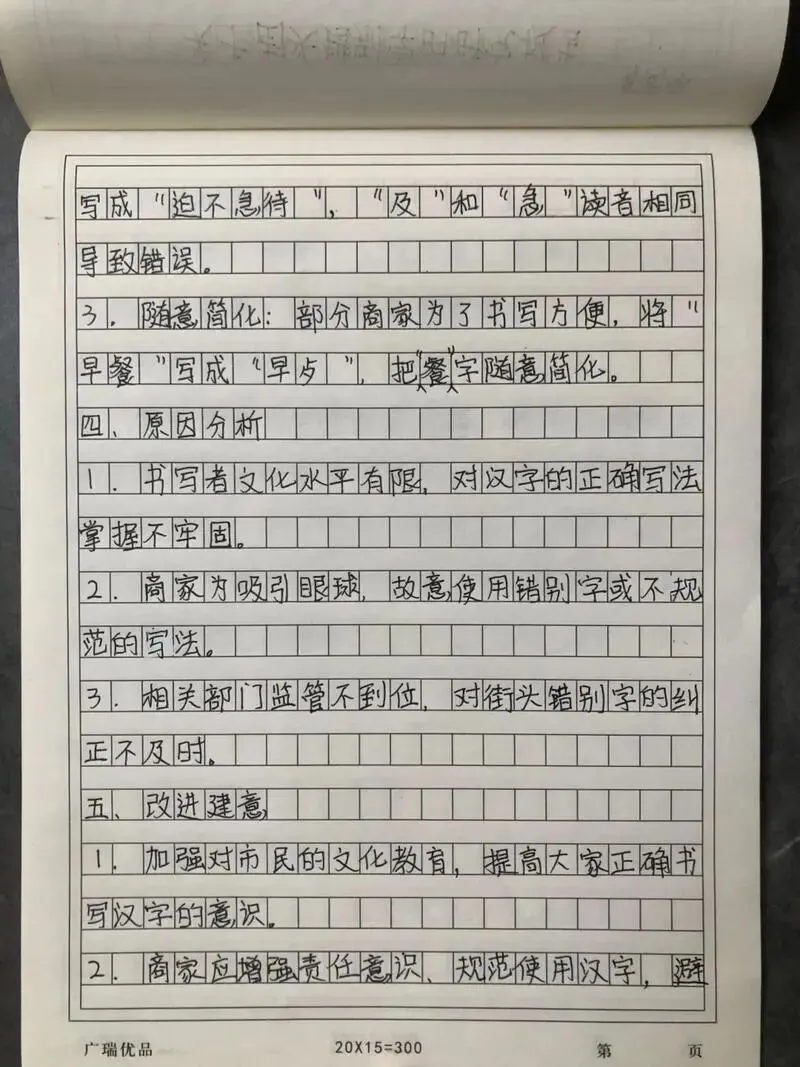 写成“迫不急待”，“及”和“急”读音相同
导致错误。
3．随意简化：部分商家为了书写方便，将“
早餐”写成“早歺”，把“餐”字随意简化。
四、原因分析
1．书写者文化水平有限，对汉字的正确写法
掌握不牢固。
2．商家为吸引眼球，故意使用错别字或不规
范的写法。
3．相关部门监管不到位，对街头错别字的纠
正不及时。
五、改进建意
1．加强对市民的文化教育，提高大家正确书
写汉字的意识。
2．商家应增强责任意识、规范使用汉字，避
广瑞优品 20X15=300 第 页